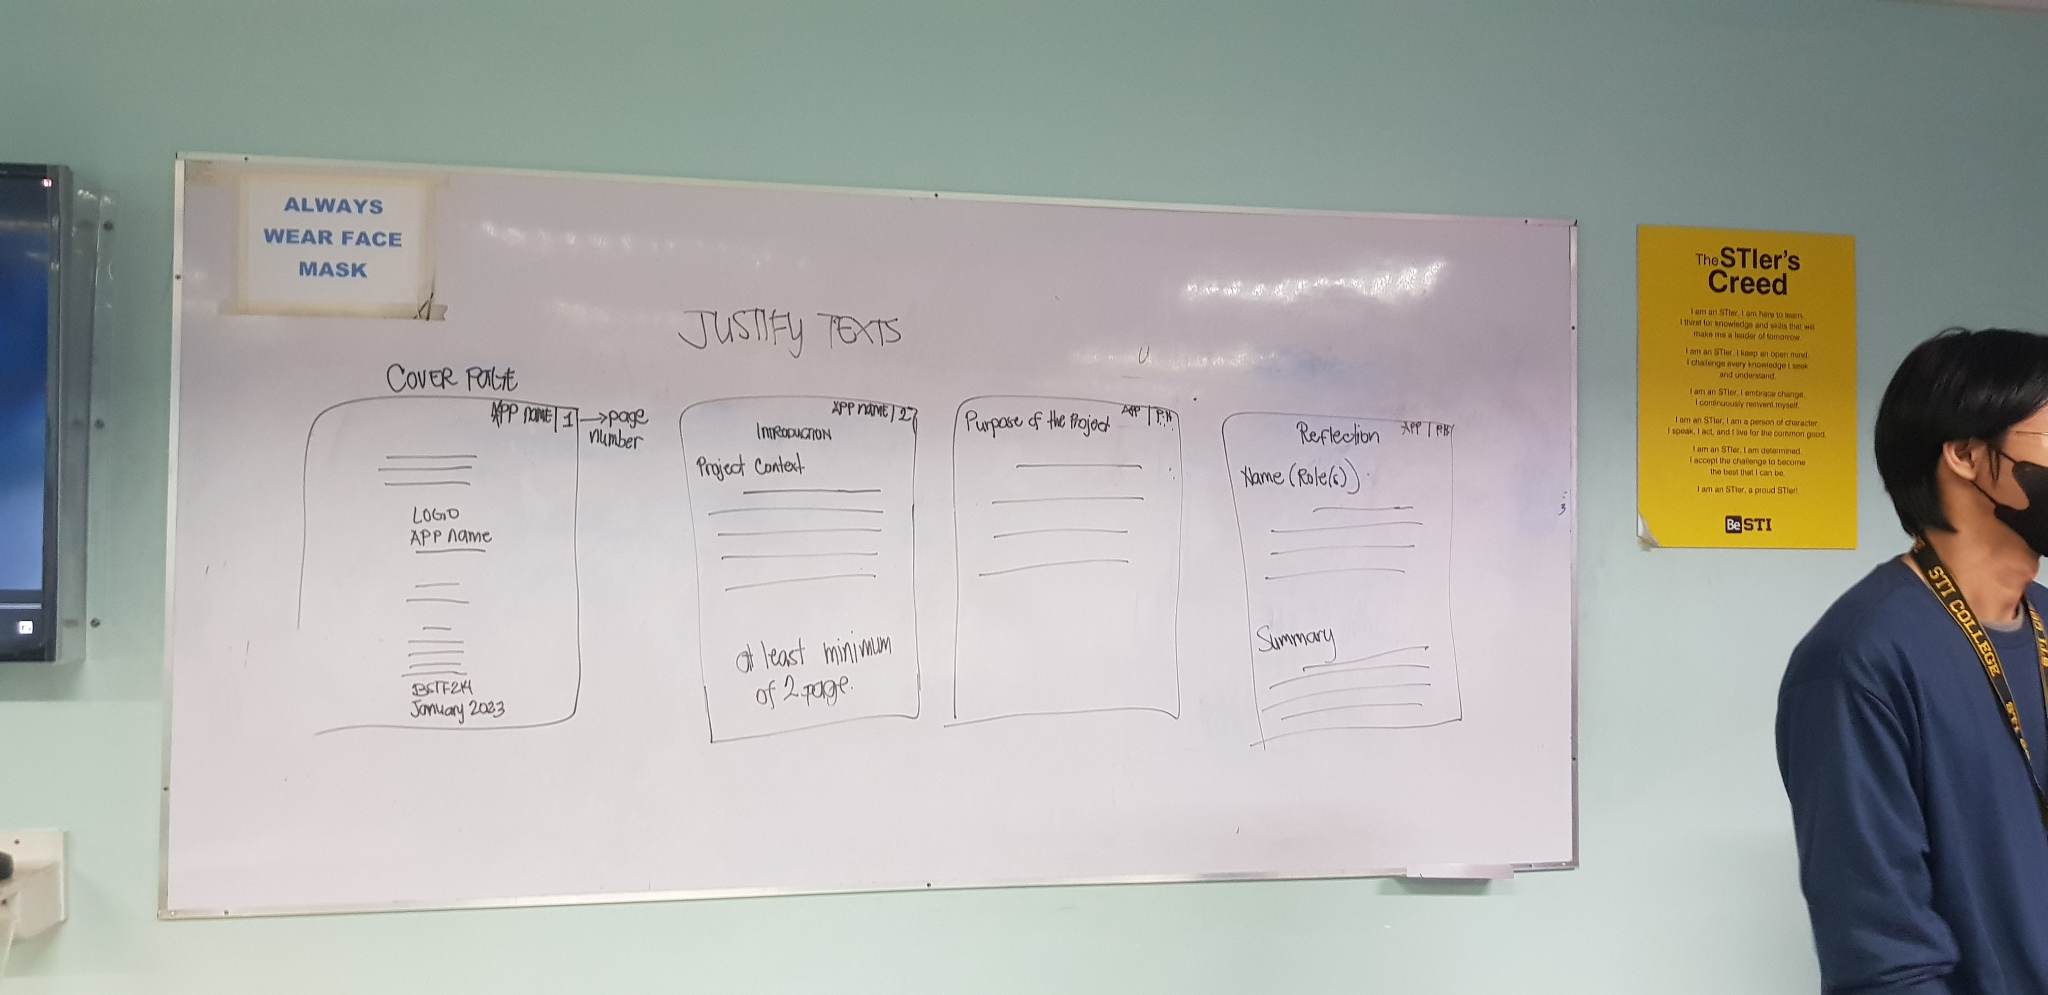 ALWAYS
WEAR FACE
MASK
JUSTIFY TEXTS
COVER PAGE
APP name | 1 → page
number
LOGO
APP name
January 2023
APP name | 2
INTRODUCTION
Project Context
at least minimum
of 2 page.
Purpose of the Project
APP | P.N
Reflection
APP | P.N
Name (Role(s))
Summary
The STIer's
Creed
I am an STIer, I am here to learn.
I thirst for knowledge and skills that will
make me a leader of tomorrow.
I am an STIer. I keep an open mind.
I challenge every knowledge I seek
and understand.
I am an STIer, I embrace change.
I continuously reinvent myself.
I am an STIer, I am a person of character.
I speak, I act, and I live for the common good.
I am an STIer, I am determined.
I accept the challenge to become
the best that I can be.
I am an STIer, a proud STIer!
Be STI
STI COLLEGE